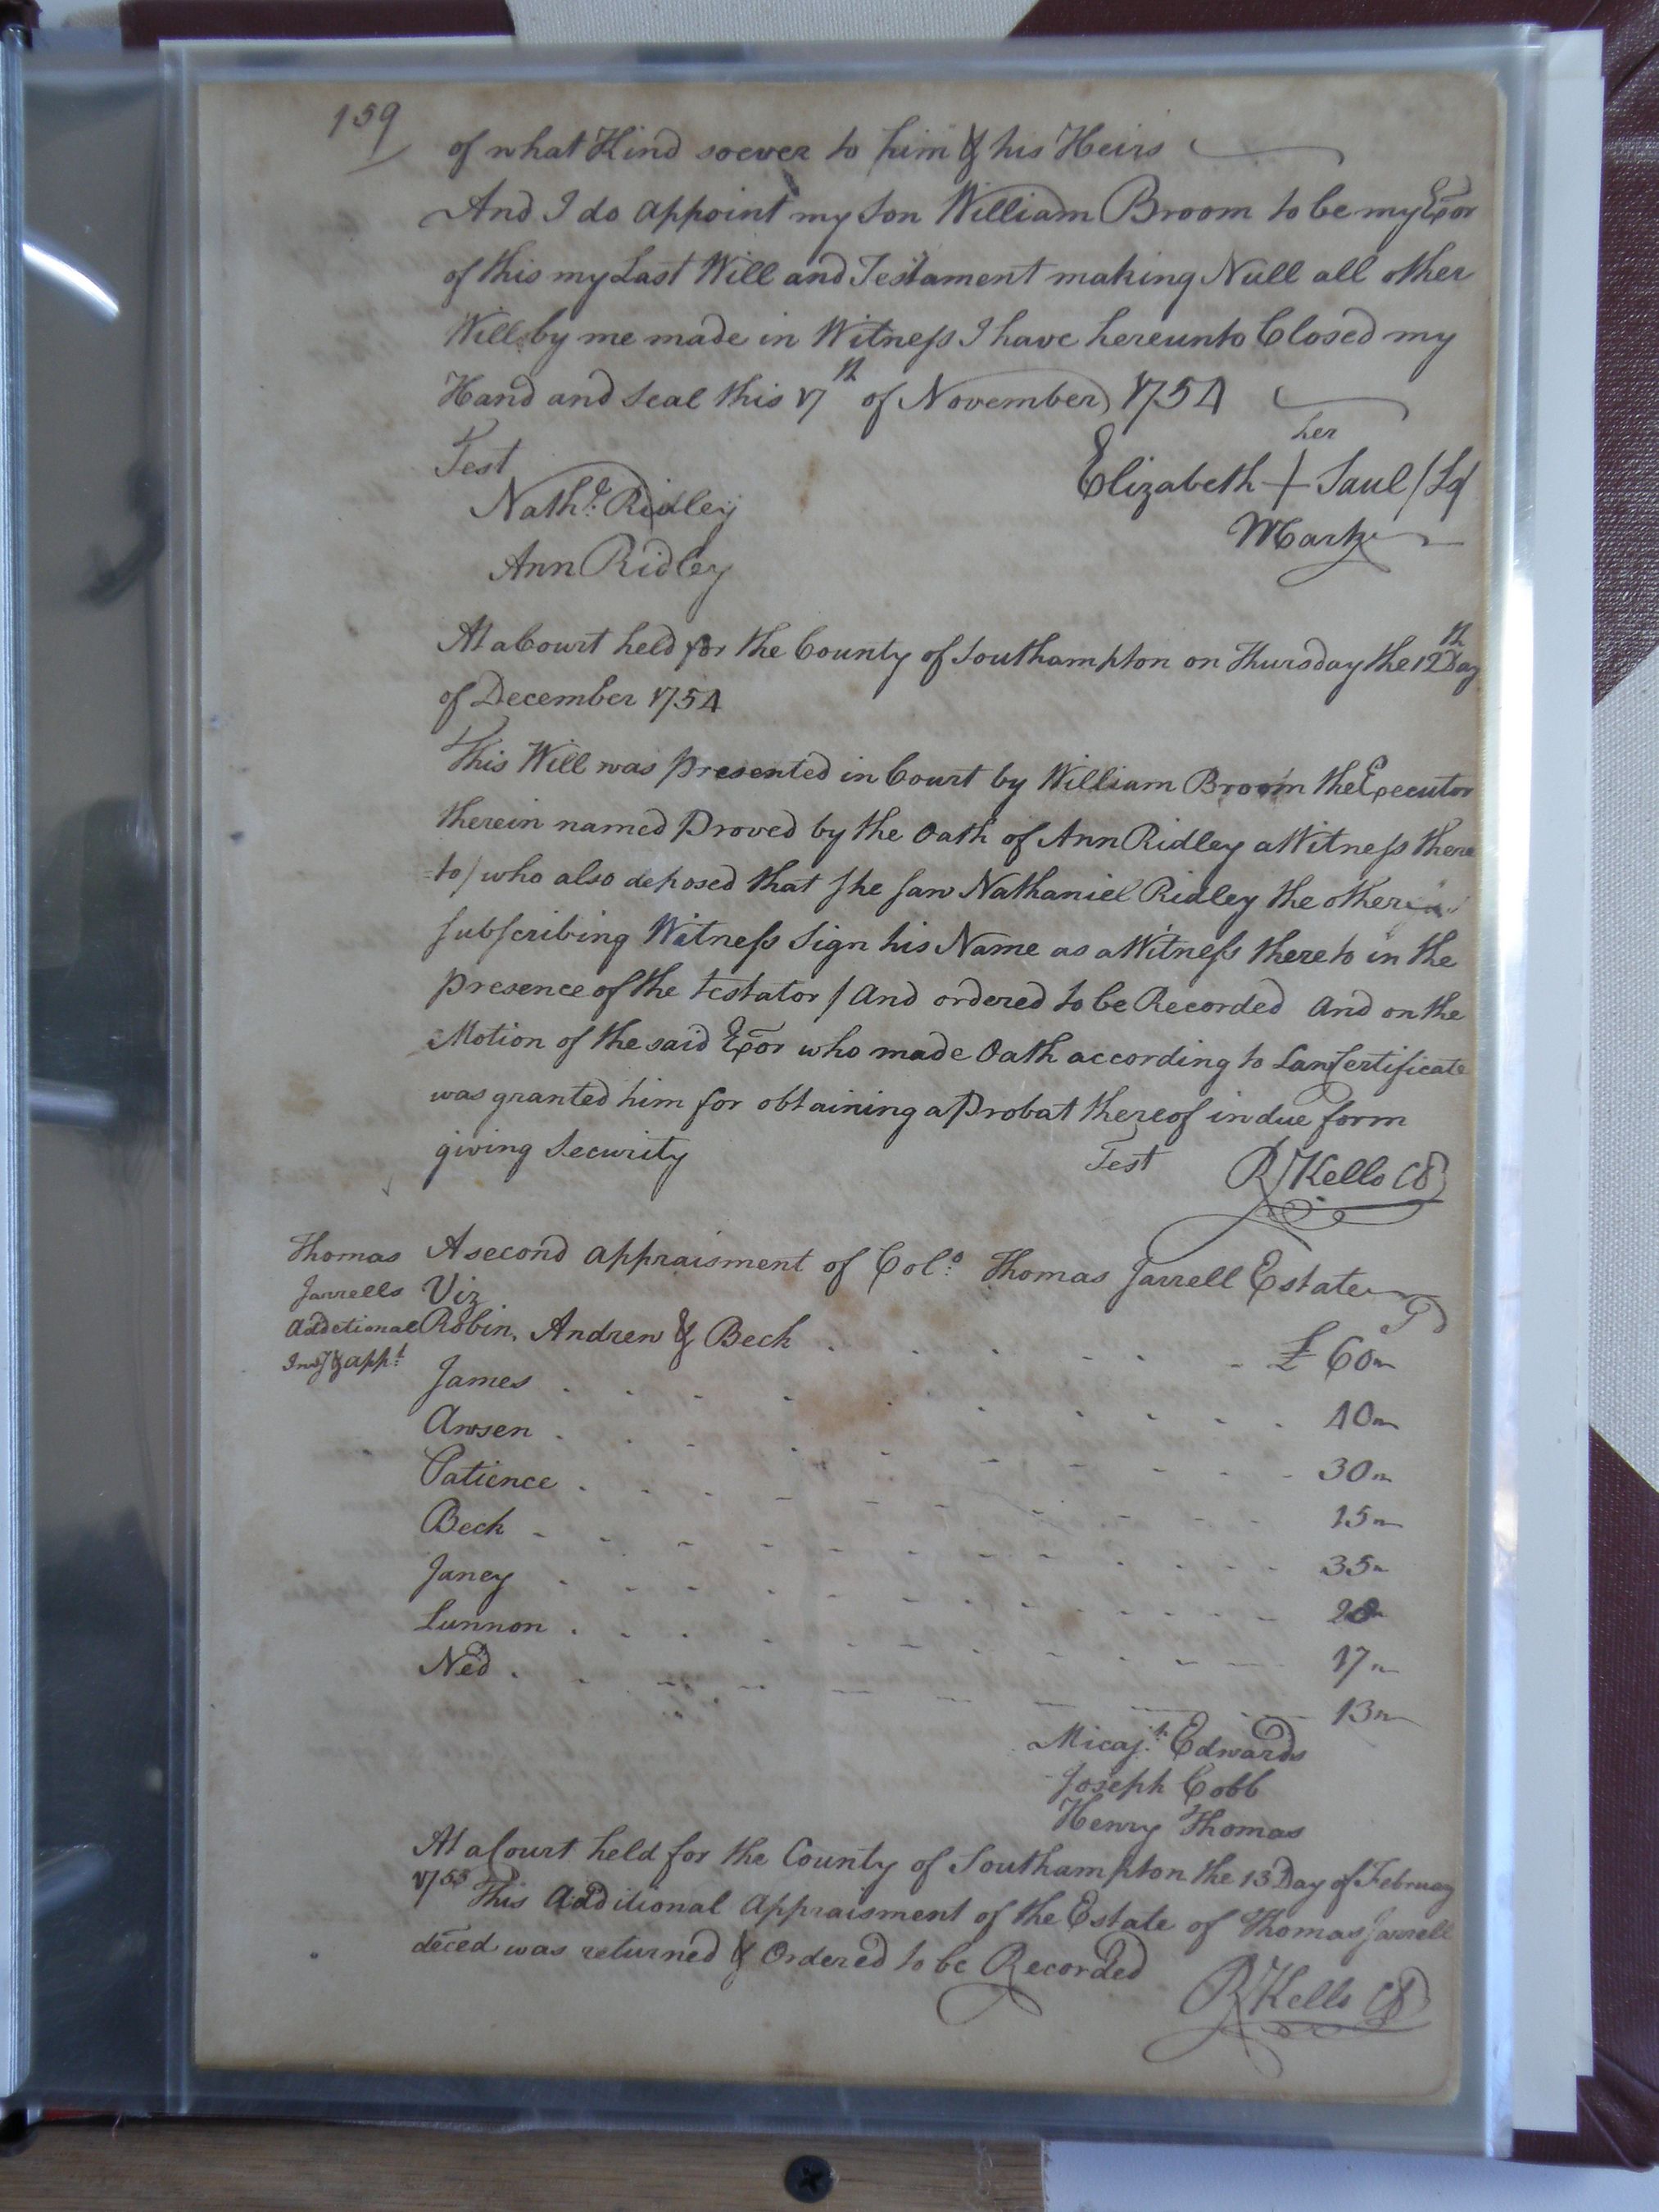 159
of what Kind soever to him & his Heirs
And I do appoint my Son William Broom to be my Exor
of this my Last Will and Testament making Null all other
Will by me made in Witness I have hereunto Closed my
Hand and Seal this 17th of November 1754
Test
Nathl. Ridley
Ann Ridley
her
Elizabeth + Saul (Ls)
Mark
At a Court held for the County of Southampton on Thursday the 12th Day
of December 1754
This Will was presented in Court by William Broom the Executor
therein named Proved by the Oath of Ann Ridley a Witness there
=to/ who also deposed that she saw Nathaniel Ridley the other
subscribing Witness Sign his Name as a Witness thereto in the
presence of the testator / And ordered to be Recorded And on the
Motion of the said Exor who made Oath according to Law Certificate
was granted him for obtaining a Probat thereof in due form
giving Security
Test R Kello CC
Thomas
Jarrells
Additional
Invy & appt.
A second appraisment of Colo. Thomas Jarrell Estate
Viz
Robin, Andrew & Beck £ 60
James 40
Awsen 30
Patience 15
Beck 35
Janey 20
Lunnon 17
Ned 13
Micajh. Edwards
Joseph Cobb
Henry Thomas
At a Court held for the County of Southampton the 13 Day of February
1755 This Additional Appraisment of the Estate of Thomas Jarrell
deced was returned & Ordered to be Recorded
R Kello CC